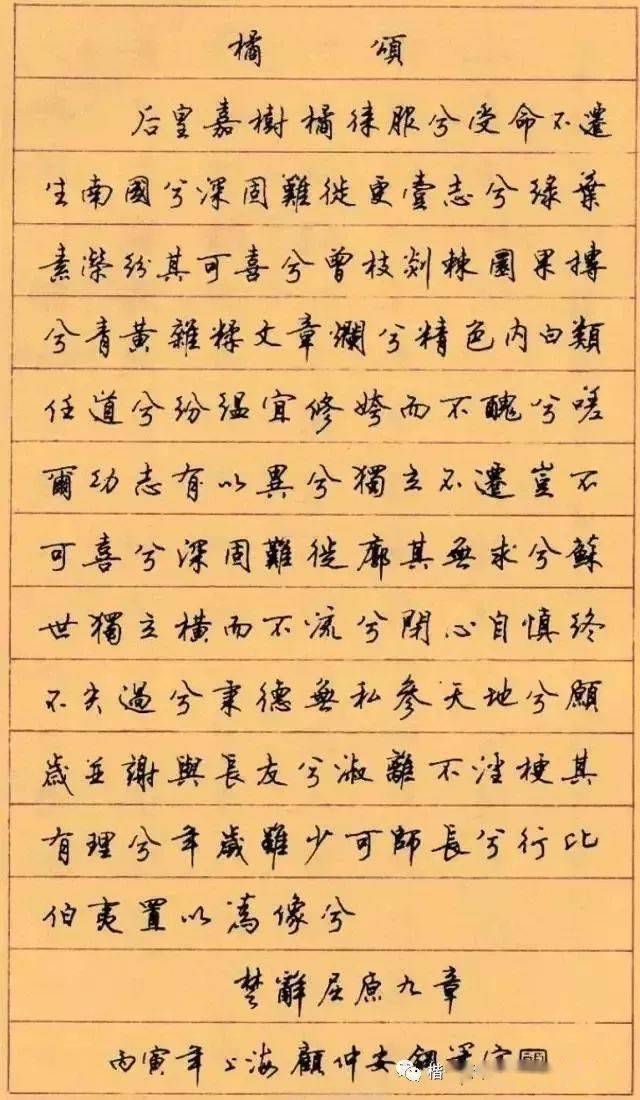 橘頌
后皇嘉樹橘徕服兮受命不遷
生南國兮深固難徙更壹志兮綠葉
素榮紛其可喜兮曾枝剡棘圓果摶
兮青黃雜糅文章爛兮精色內白類
任道兮紛緼宜修姱而不醜兮嗟
爾幼志有以異兮獨立不遷豈不
可喜兮深固難徙廓其無求兮蘇
世獨立橫而不流兮閉心自慎終
不失過兮秉德無私參天地兮願
歲並謝與長友兮淑離不淫梗其
有理兮年歲雖少可師長兮行比
伯夷置以為像兮
楚辭屈原九章
丙寅年上海顧仲安鋼筆字